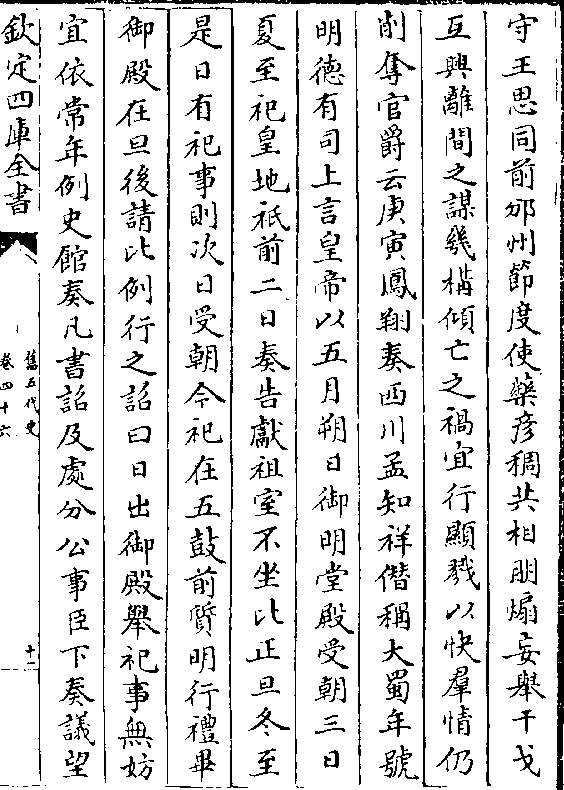 守王思同前邠州節度使藥彦稠共相朋煽妄舉干戈
互興離間之謀幾構傾亡之禍宜行顯戮以快羣情仍
削奪官爵云庚寅鳳翔奏西川孟知祥僣稱大蜀年號
明徳有司上言皇帝以五月朔日御明堂殿受朝三日
夏至祀皇地祇前二日奏告獻祖室不坐比正旦冬至
是日有祀事則次日受朝今祀在五鼓前質明行禮畢
御殿在旦後請比例行之詔曰日出御殿舉祀事無妨
宜依常年例史館奏凡書詔及處分公事臣下奏議望
欽定四庫全書
舊五代史
卷四十六
十二